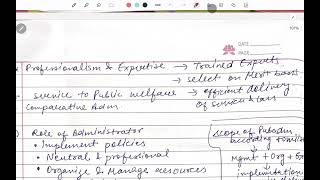 101%
DATE
PAGE
Professionalism & Expertise → Trained Experts
→ select on Merit basis
service to Public welfare → efficient delivery
Of service & law
Comparative Adm.
Role of Administrator
• Implement policies
• Neutral & professional
• Organize & Manage resources
scope of Pubadm
according
Mgmt + Org +
↓
implimentation